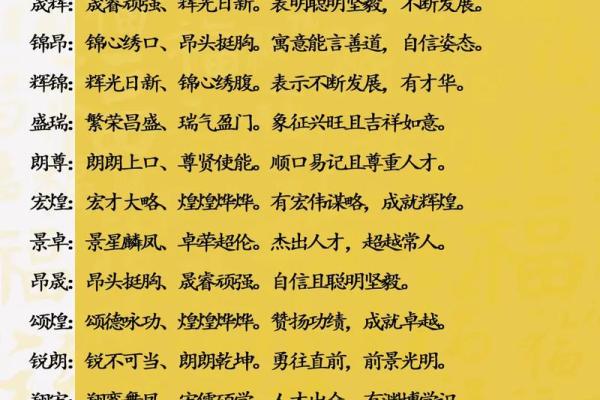 晟祥：晟睿顽强、辉光日新。表明聪明坚毅，不断发展。
锦昂：锦心绣口、昂头挺胸。寓意能言善道，自信姿态。
辉锦：辉光日新、锦心绣腹。表示不断发展，有才华。
盛瑞：繁荣昌盛、瑞气盈门。象征兴旺且吉祥如意。
朗尊：朗朗上口、尊贤使能。顺口易记且尊重人才。
宏煌：宏才大略、煌煌烨烨。有宏伟谋略，成就辉煌。
景卓：景星麟凤、卓荦超伦。杰出人才，超越常人。
昂晟：昂头挺胸、晟睿顽强。自信且聪明坚毅。
颂煌：颂德咏功、煌煌烨烨。赞扬功绩，成就卓越。
锐朗：锐不可当、朗朗乾坤。勇往直前，前景光明。